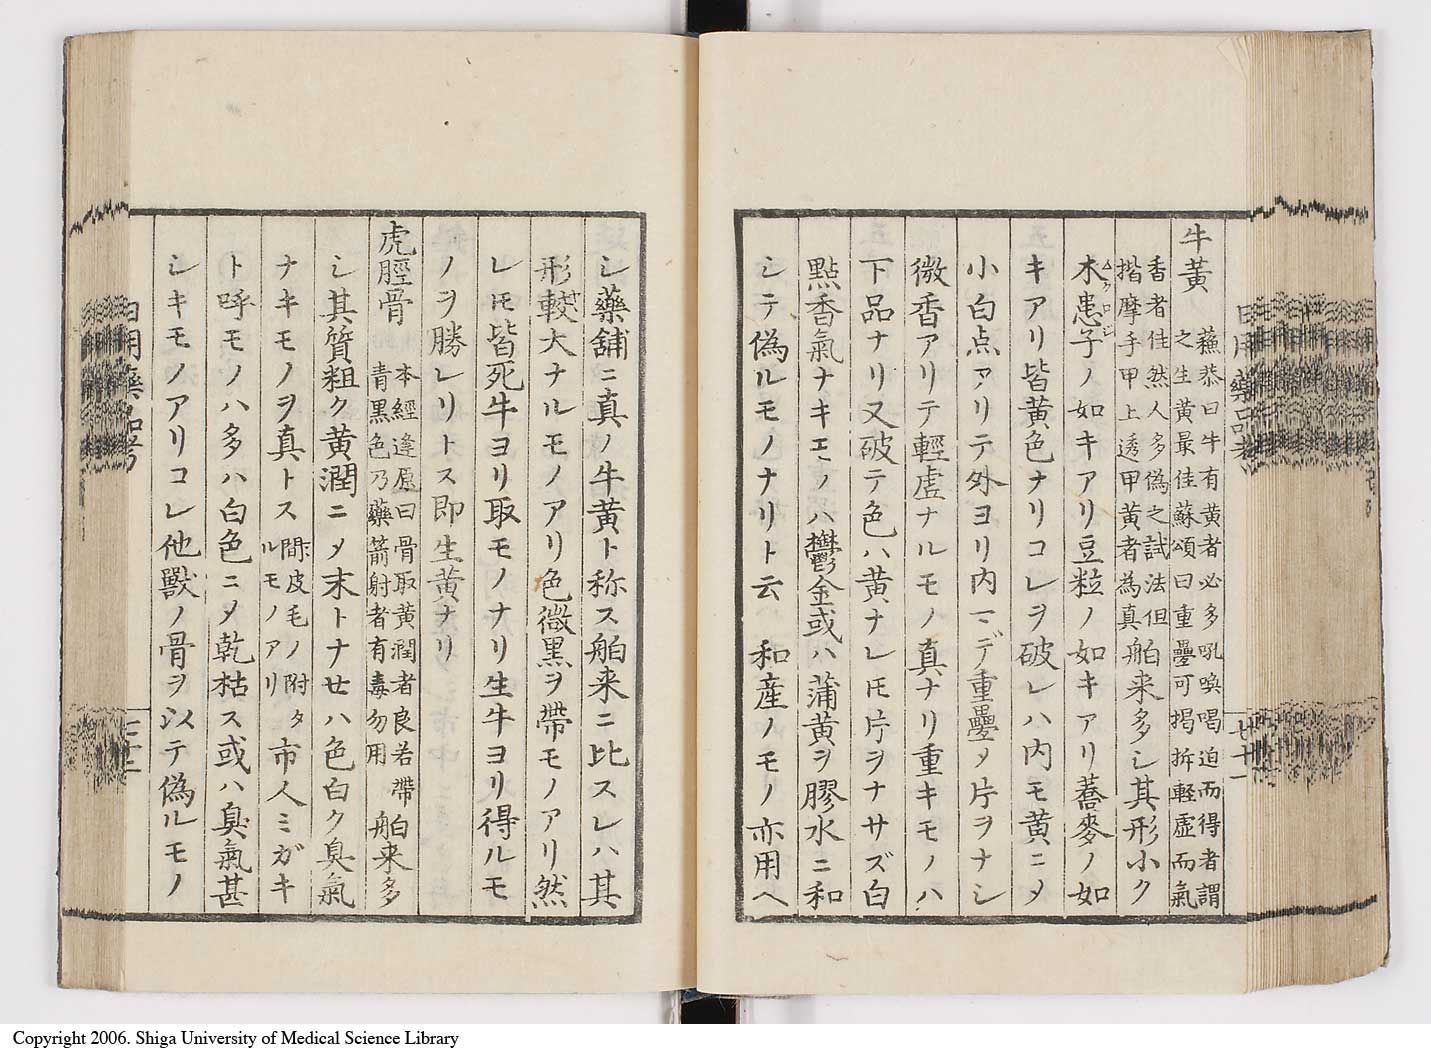 牛黄 蘓恭曰牛有黄者必多吼喚喝迫而得者謂
之生黄最佳蘇頌曰重疊可揭拆軽虚而氣
香者佳然人多偽之試法但
揩摩手甲上透甲黄者為真 舶来多シ其形小ク
木患子ノ如キアリ豆粒ノ如キアリ蕎麥ノ如
ムクロジ
キアリ皆黄色ナリコレヲ破レハ内モ黄ニメ
小白点アリテ外ヨリ内マデ重疊メ片ヲナシ
微香アリテ輕虚ナルモノ真ナリ重キモノハ
下品ナリ又破テ色ハ黄ナレㇳモ片ヲナサズ白
點香氣ナキモノハ鬱金或ハ蒲黄ヲ膠水ニ和
シテ偽ルモノナリト云 和産ノモノ亦用ヘ
日用藥品考
七十一
シ藥舖ニ真ノ牛黄ト称ス舶来ニ比スレハ其
形較大ナルモノアリ色微黒ヲ帯モノアリ然
レㇳモ皆死牛ヨリ取モノナリ生牛ヨリ得ルモ
ノヲ勝レリトス即生黄ナリ
虎脛骨 本經逢原曰骨取黄潤者良若帶
青黒色乃藥箭射者有毒勿用 舶来多
シ其質粗ク黄潤ニメ末トナセハ色白ク臭氣
ナキモノヲ真トス 間皮毛ノ附タ
ルモノアリ 市人ミガキ
ト呼モノハ多ハ白色ニメ乾枯ス或ハ臭氣甚
シキモノアリコレ他獸ノ骨ヲ以テ偽ルモノ
日用藥品考
Copyright 2006. Shiga University of Medical Science Library